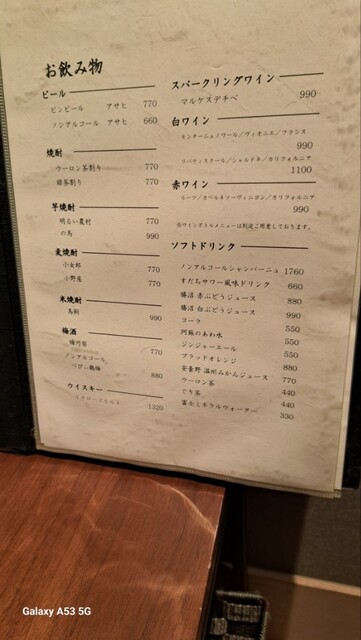 お飲み物
ビール
ビンビール アサヒ 770
ノンアルコール アサヒ 660
焼酎
ウーロン茶割り 770
緑茶割り 770
芋焼酎
明るい農村 770
の馬 990
麦焼酎
小女郎 770
小野屋 770
米焼酎
鳥飼 990
梅酒
梅乃宿 770
ノンアルコール
べびぃ鶴梅 880
ウイスキー
1320
スパークリングワイン
マルケスデチベ 990
白ワイン
モンターニュノワール/ヴィオニエ/フランス
990
リバティスクール/シャルドネ/カリフォルニア
1100
赤ワイン
ルーツ/カベルネソーヴィニヨン/カリフォルニア
990
※ワインボトルメニューは別途ご用意しております。
ソフトドリンク
ノンアルコールシャンパーニュ 1760
すだちサワー風味ドリンク 660
勝沼 赤ぶどうジュース 880
勝沼 白ぶどうジュース 990
コーラ 550
阿蘇のあわ水 550
ジンジャーエール 550
ブラッドオレンジ 880
安曇野 温州みかんジュース 770
ウーロン茶 440
ぐり茶 440
富士ミネラルウォーター 330
Galaxy A53 5G